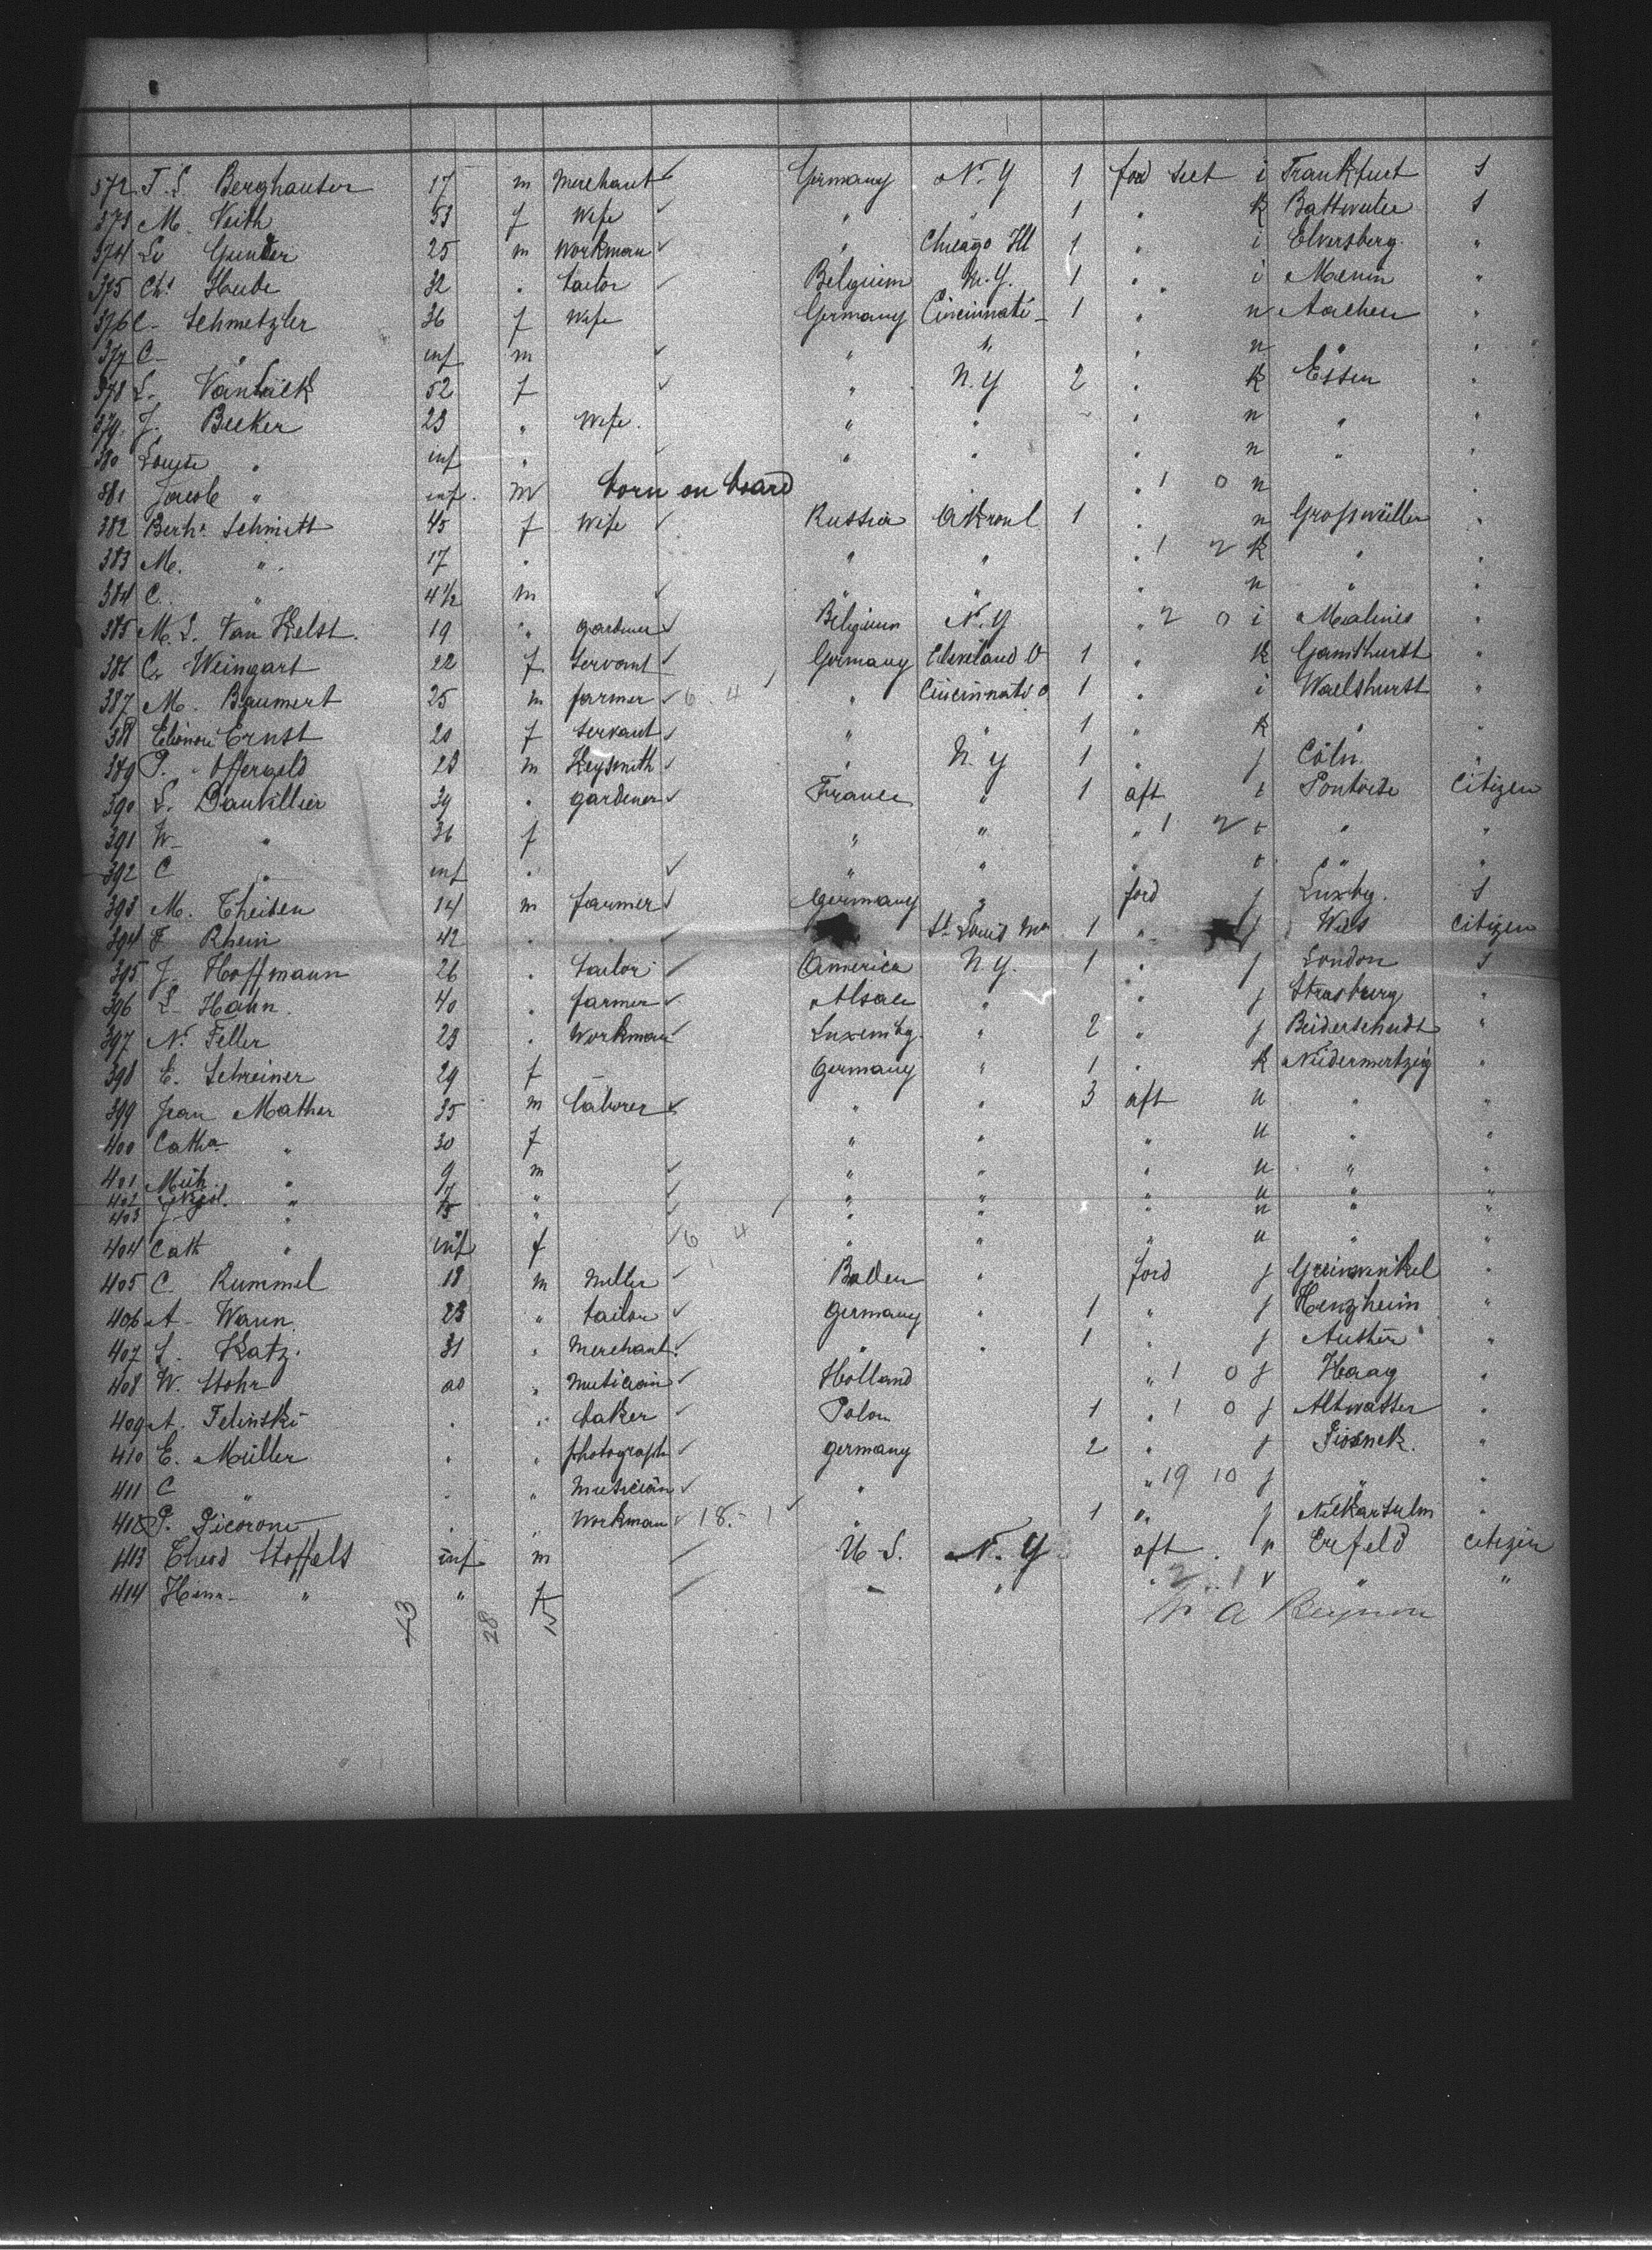 372 F. S. Berghauser 17 m Merchant ✓ Germany N. Y 1 ford sect i Frankfurt S
373 M. Veith 53 f Wife ✓ " " 1 " k S
374 Gunder 25 m Workman ✓ " Chicago Ill 1 " i Elversberg "
375 Chs Heube 32 " tailor ✓ Belgium N. Y. 1 " i Menin "
376 C. Schmetzler 36 f Wife Germany Cincinnati 1 " n Aachen "
377 C. " inf m ✓ " " " n " "
378 L. 52 f ✓ " N. Y 2 " k Essen "
379 J. Becker 23 " Wife " " " n " "
380 Louise " inf " " " " n " "
381 Jacob " inf. m born on board " 1 0 n "
382 Berth. Schmitt 45 f Wife ✓ Russia 1 " n "
383 M. " 17 " " " " 1 2 k " "
384 C. " 4½ m ✓ " " " n " "
385 M. L. Van Kelst 19 " gardner ✓ Belgium N. Y " 2 0 i Malines "
386 C. Weingart 22 f Servant ✓ Germany Cleveland O 1 " k Gamshurst "
387 M. Baumert 25 m farmer ✓ 6 4 " Cincinnati O 1 " i Waelshurst "
388 Elionore Ernst 20 f Servant ✓ " " 1 " k " "
389 P. Offergeld 23 m Keysmith ✓ " N. Y 1 " j Cöln "
390 L. Dauvillier 39 " gardener ✓ France " 1 aft t Pontoise Citizen
391 W. " 36 f " " " 1 2 t " "
392 C " inf " ✓ " " " t " "
393 M. Theisen 14 m farmer ✓ Germany " ford j Luxbg. S
394 F Rhein 42 " " St Louis Mo 1 " j Wies Citizen
395 J. Hoffmann 26 " tailor ✓ America N. Y. 1 " j London S
396 L. Hann 40 " farmer ✓ Alsace " " j Strasburg "
397 N. Feller 23 " Workman Luxembg. " 2 " j "
398 E. Schreiner 29 f Germany " 1 " k Niedermertzig "
399 Jean Mather 35 m laborer ✓ " " 3 aft u " "
400 Catha " 30 f " " " u " "
401 Mich. " 9 m ✓ " " " u " "
402 " 7 " ✓ " " " u " "
403 J. " " ✓ " " " u " "
404 Cath " inf f ✓ 6 4 " " " u " "
405 C. Rummel 18 m Miller ✓ Baden " ford j Grünwinkel "
406 A. Wann 23 " tailor ✓ Germany " 1 " j "
407 S. Katz 31 " Merchant ✓ " " 1 " j "
408 W. Stohr 20 " Musician ✓ Holland " 1 0 j Haag "
409 A. Felinski " " baker ✓ Polon 1 " 1 0 j Altwasser "
410 E. Müller " " photograph ✓ Germany 2 " j "
411 C " " " Musician ✓ " " 19 10 j " "
412 P. Picorone " " Workman ✓ 18 - 1 ✓ " 1 " j Nekarsulm "
413 Theod Stoffels inf m U. S. N. Y aft v Crefeld citizen
414 " " f " " 2 1 v " "
43 28 15